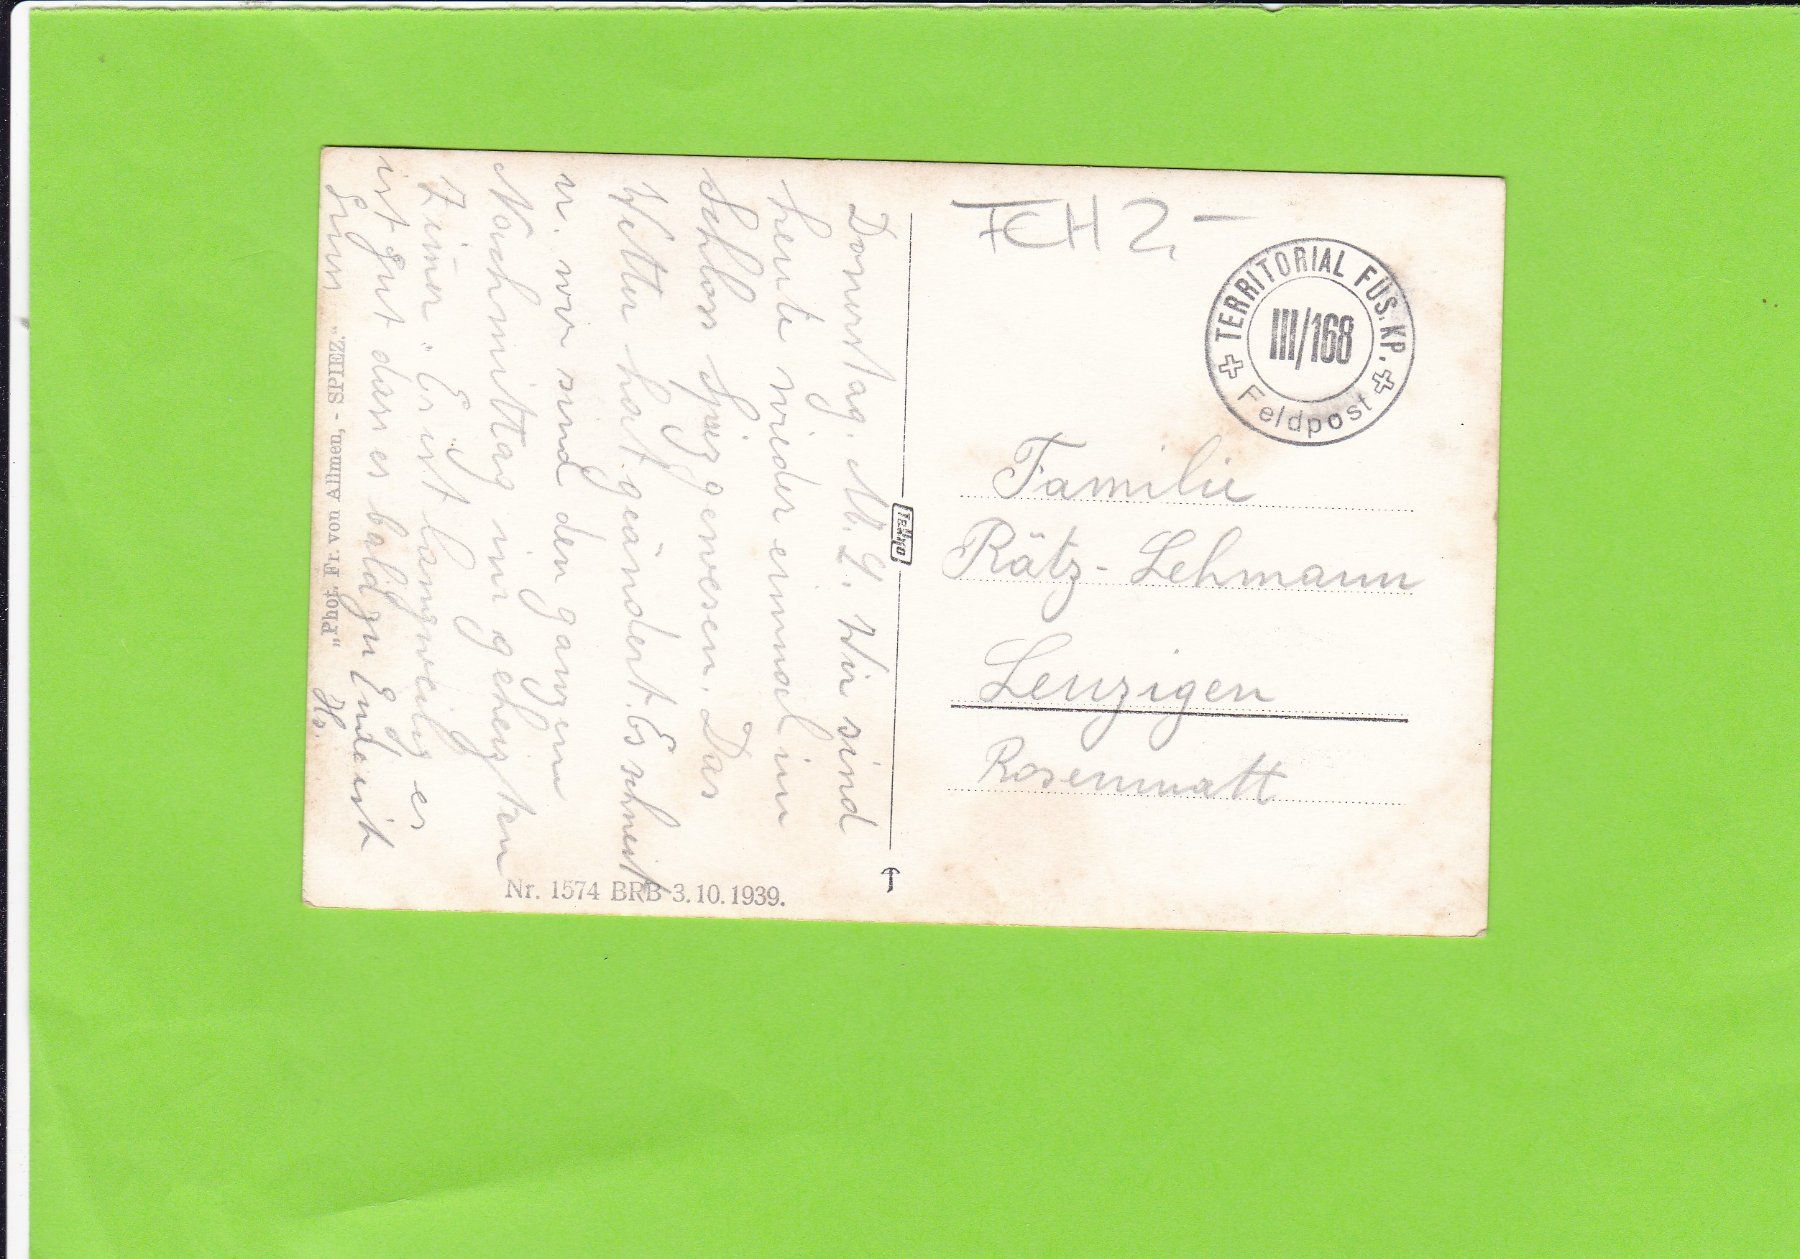 Donerstag. M. L. Wir sind
heute wieder einmal im
Schloss Spiez gewesen. Das
Wetter hat geändert. Es schneit
u. wir sind den ganzen
Nachmittag im geheizten
Zimer. Es ist langweilig es
ist gut dass es bald zu Ende ist
Gruss Hs.
„Phot. Fr. von Allmen, - SPIEZ.“
Nr. 1574 BRB 3.10.1939.
FCH 2.-
TERRITORIAL FÜS. KP.
III/168
Feldpost
Familie
Rätz-Lehmann
Leuzigen
Rosenmatt